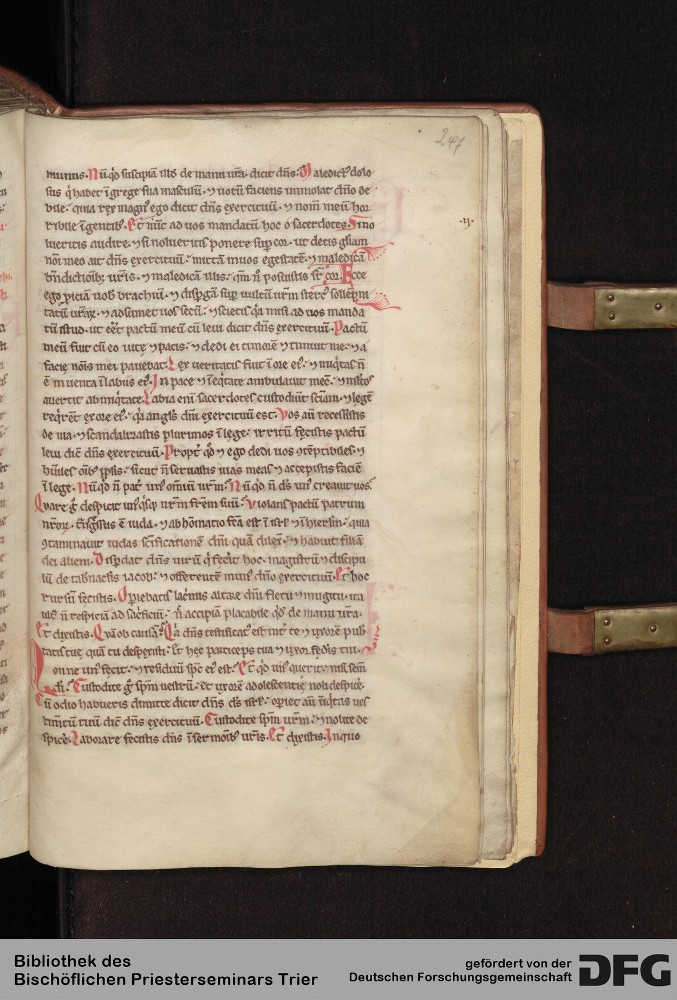 247
munus. Nūqd suscipiā illd de manu uīa. dicit dn̄s. Maledict dolo
sus q̇ habet ī grege suo masculū. ⁊ uotū faciens immolat dn̄o de
bile. quia rex magn̄ ego dicit dn̄s exercituū. ⁊ nom̄ meū hor
ribile ī gentib;. Et nūc ad uos mandatū hoc o sacerdotes. Si no
.ij.
lueritis audire. ⁊ si nolueritis ponere sup cor. ut detis gl̄am
noī meo ait dn̄s exercituū. mittā in uos egestatē. ⁊ maledicā
bn̄dictionib; ur̄is. ⁊ maledicā illis. qm̄ n̄ posuistis sr̄ cor. Ecce
ego ꝓiciā uob brachiū. ⁊ disꝑgā sup uultū ur̄m sterc' sollēpni
tatū urarꝝ. ⁊ adsumet uos secū. ⁊ scietis q̇a misi ad uos manda
tū istud. ut eēt pactū meū cū leui dicit dn̄s exercituū. Pactū
meū fuit cū eo uitę ⁊ pacis. ⁊ dedi ei timorē ⁊ timuit me. ⁊ a
facie nōis mei pauebat. Lex ueritatis fuit ī ore ei'. ⁊ iniq̇tas n̄
ē inuenta ī labiis ei'. In pace ⁊ ī eq̇tate ambulauit mecū. ⁊ mltos
auertit ab iniq̇tate. Labia eni sacerdotes custodiūt sciam. ⁊ legē
req̇rēt ex ore ei'. q̇a angls dn̄i exercituū est. Vos aū recessistis
de uia. ⁊ scandalizastis plurimos ī lege. irritū fecistis pactū
leui dic̄ dn̄s exercituū. Propt' qd ⁊ ego dedi uos ↄtēptibiles. ⁊
hūiles oīb; ppl̄is. sicut n̄ seruastis uias meas ⁊ accepistis faciē
ī lege. Nūqd n̄ pat' un' omīū ur̄m. Nūqd n̄ ds̄ un' creauit nos.
Quare ḡ despicit un'q̇sq; nr̄m fr̄em suū. uiolans pactū patrum
nr̄orꝝ. Tn̄sg̃ssus ē iuda. ⁊ abhominatio fc̄a est ī isrl. ⁊ ī hierlm̄. quia
ↄtaminauit iudas sc̄ificationē dn̄i quā dilex̄. ⁊ habuit filiā
dei alieni. Disꝑdat dn̄s uirū q̇ fec̄it hoc. magistrū ⁊ discipu
lū de tabnacl̄is iacob. ⁊ offerentē mun' dn̄o exercituū. Et hoc
rursū fecistis. Opiebatis lac̄mis altare dn̄i fletu ⁊ mugitu. ita
ut n̄ respiciā ad sac̄ficiū. n̄ accipiā placabile qd de manu ur̄a.
Et dixistis. Quā ob causā. Q̇a dn̄s testificat' est int' te ⁊ uxorē pub
tatis tuę quā tu despexisti. Et hęc particeps tua ⁊ uxor fed'is tui.
Nonne un' fecit. ⁊ residuū sps̄ ei' est. Et qd un' querit nisi sem̄
di. Custodite ḡ sp̄m uestrū. et uxorē adolescentię noli despicē.
Cū odio habueris dimitte dicit dn̄s ds̄ isrl. opiet aū iniq̇tas ues
timētū tuū dic̄ dn̄s exercituū. Custodite sp̄m ur̄m ⁊ nolite de
spicē. Laborare fecistis dn̄s ī sermonib; ur̄is. Et dixistis. In quo
Bibliothek des
Bischöflichen Priesterseminars Trier
gefördert von der
Deutschen Forschungsgemeinschaft
DFG